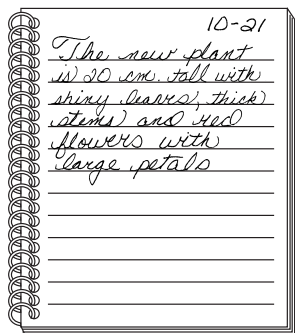 10-21
The new plant
is 20 cm. tall with
shiny leaves, thick
stems and red
flowers with
large petals